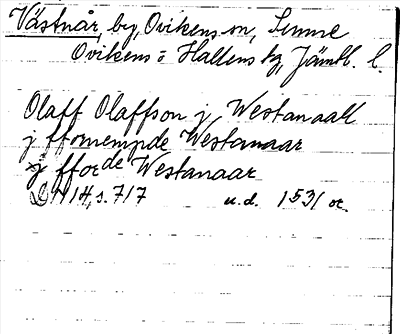 Västnår, by, Ovikens sn,
Ovikens o Hallens tg, Jämtl. l.
Olaff Olaffson j Westanaall
j ffornempde Westanaar
j fforde Westanaar
DN 14, s. 717 u.d. 1531 or.